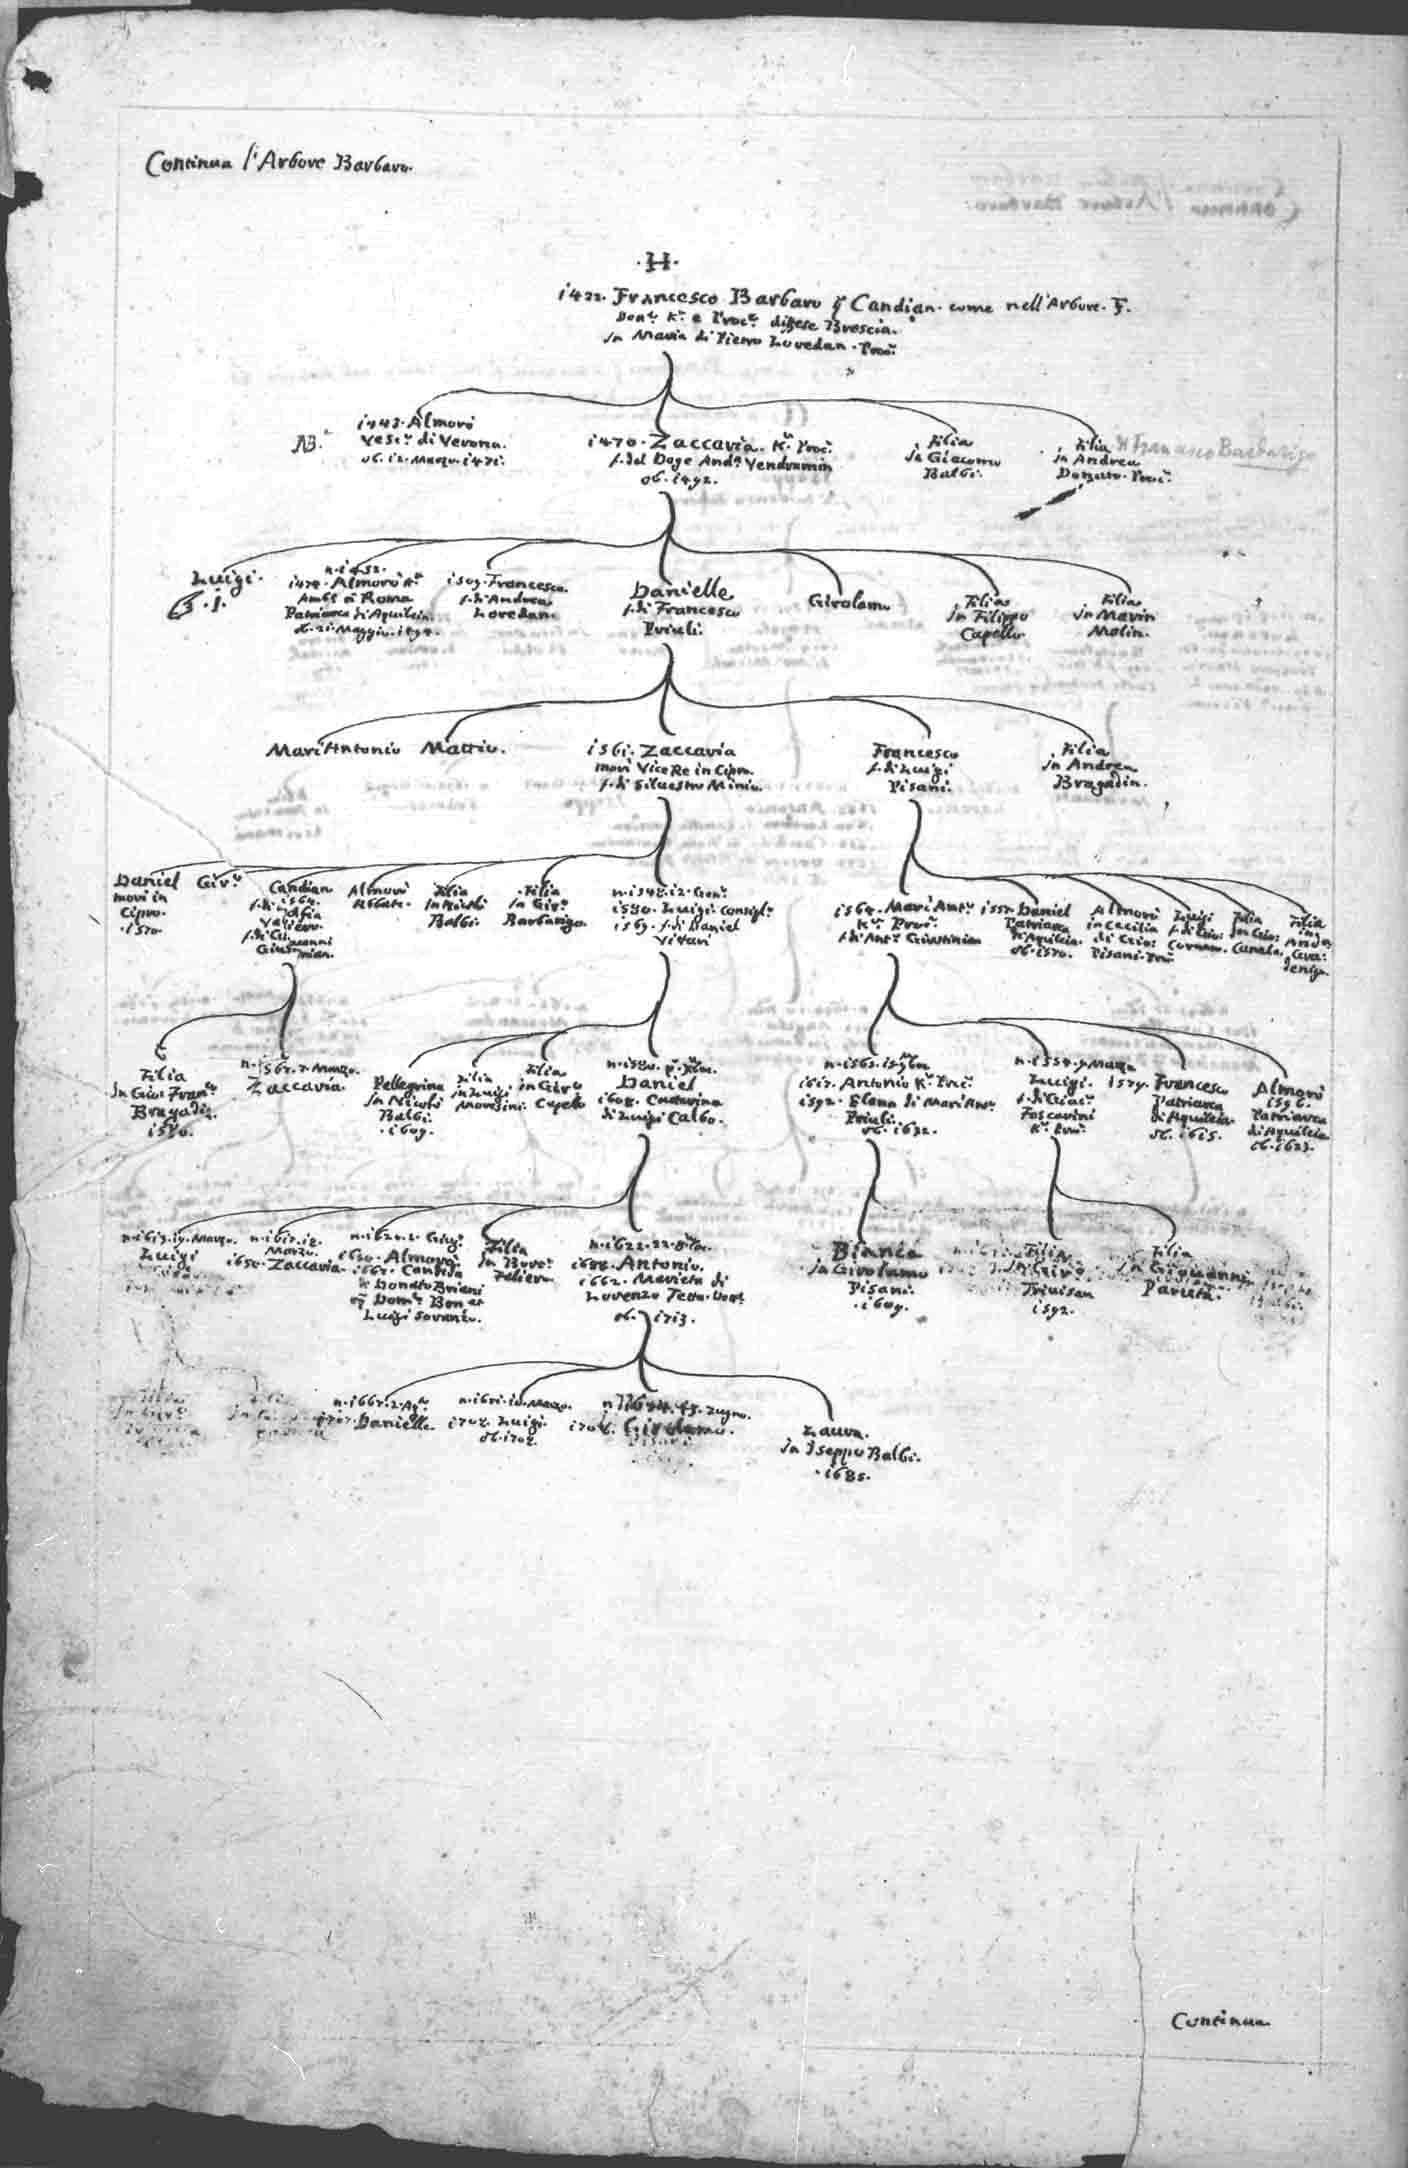 Continua l'Arbore Barbaro.
.H.
1422. Francesco Barbaro q Candian. come nell'Arbore. F.
Don.r K.r e Proc.r difese Brescia.
in Maria di Piero Loredan. Proc.r
NB.
1443. Almorò
Vesc.o di Verona.
ob. 12. Marzo. 1471.
1470. Zaccaria. K.r Proc.r
f. del Doge And.a Vendramin
ob. 1492.
Filia
in Giacomo
Balbi.
Filia
in Andrea
Donato. Proc.r
K Francesco Barbarigo
Luigi.
.I.
n. 1452.
1474. Almorò K.r
Amb.r à Roma
Patriarca di Aquileia.
ob. 21. Maggio. 1494.
1509. Francesco.
f. di Andrea
Loredan.
Danielle
f. di Francesco
Priuli.
Girolamo
Filia
in Filippo
Capello
Filia
in Marin
Molin.
Marc'Antonio
Mattio.
1561. Zaccaria
morì Vice Re in Cipro.
f. di Silvestro Minio.
Francesco
f. di Luigi
Pisani.
Filia
in Andrea
Bragadin.
Daniel
morì in
Cipro.
.1570.
Gir.o
Candian
1564.
f. di
Valiero.
f. di Giovanni
Giustinian.
Almorò
Abbate.
Filia
in Nicolò
Balbi.
Filia
in Gir.o
Barbarigo.
n. 1548. 12. Gen.o
1580. Luigi. Consigl.r
1569. f. di Daniel
Vituri
1564. Marc'Ant.o
K.r Proc.r
f. di Ant.o Giustinian
1557. Daniel
Patriarca
d'Aquileia.
ob. 1570.
Almorò
in Cecilia
di Gio:
Pisani. Proc.r
Luigi
f. di Gio:
Cornaro.
Filia
in Gio:
Canale.
Filia
in
And.a
Gra:
denigo.
Filia
in Gio: Fran.co
Bragadin
1580.
n. 1567. 7. Marzo.
Zaccaria.
Pellegrina
in Nicolò
Balbi.
.1609.
Filia
in Luigi
Morosini.
Filia
in Gir.o
Capello
n. 1580. p.o Xbre.
Daniel
1608. Cattarina
di Luigi Calbo.
n. 1565. 15. 9bre
1617. Antonio K.r Proc.r
1592. Elena di Marc'Ant.o
Priuli.
ob. 1632.
n. 1554. 9 Marzo
Luigi.
f. di Giac.o
Foscarini
K.r Proc.r
1579. Francesco
Patriarca
di Aquileia.
ob. 1615.
Almorò
1596.
Patriarca
di Aquileia
ob. 1623.
n. 1613. 19. Marzo.
Luigi
n. 1617. 12.
Marzo.
1650. Zaccaria
n. 1620. 2. Giug.
1650. Almorò
1667. Contesa
di Donato Briani
q Dom.o Bon et
Luigi Soranzo.
Filia
in Bort.o
Falier
n. 1622. 22. 8bre.
1688. Antonio.
1662. Marieta di
Lorenzo Tetta. Dott.r
ob. 1713.
Bianca
in Girolamo
Pisani.
.1609.
Filia
in Gir.o
Trivisan
1592.
Filia
in Giovanni
Paruta.
n. 1667. 2. Ag.o
1707. Danielle
n. 1671. 10. Marzo.
1702. Luigi.
ob. 1702.
n. 1674. 15. Zugno.
1706. Girolamo.
Laura.
in Iseppo Balbi.
.1685.
Continua